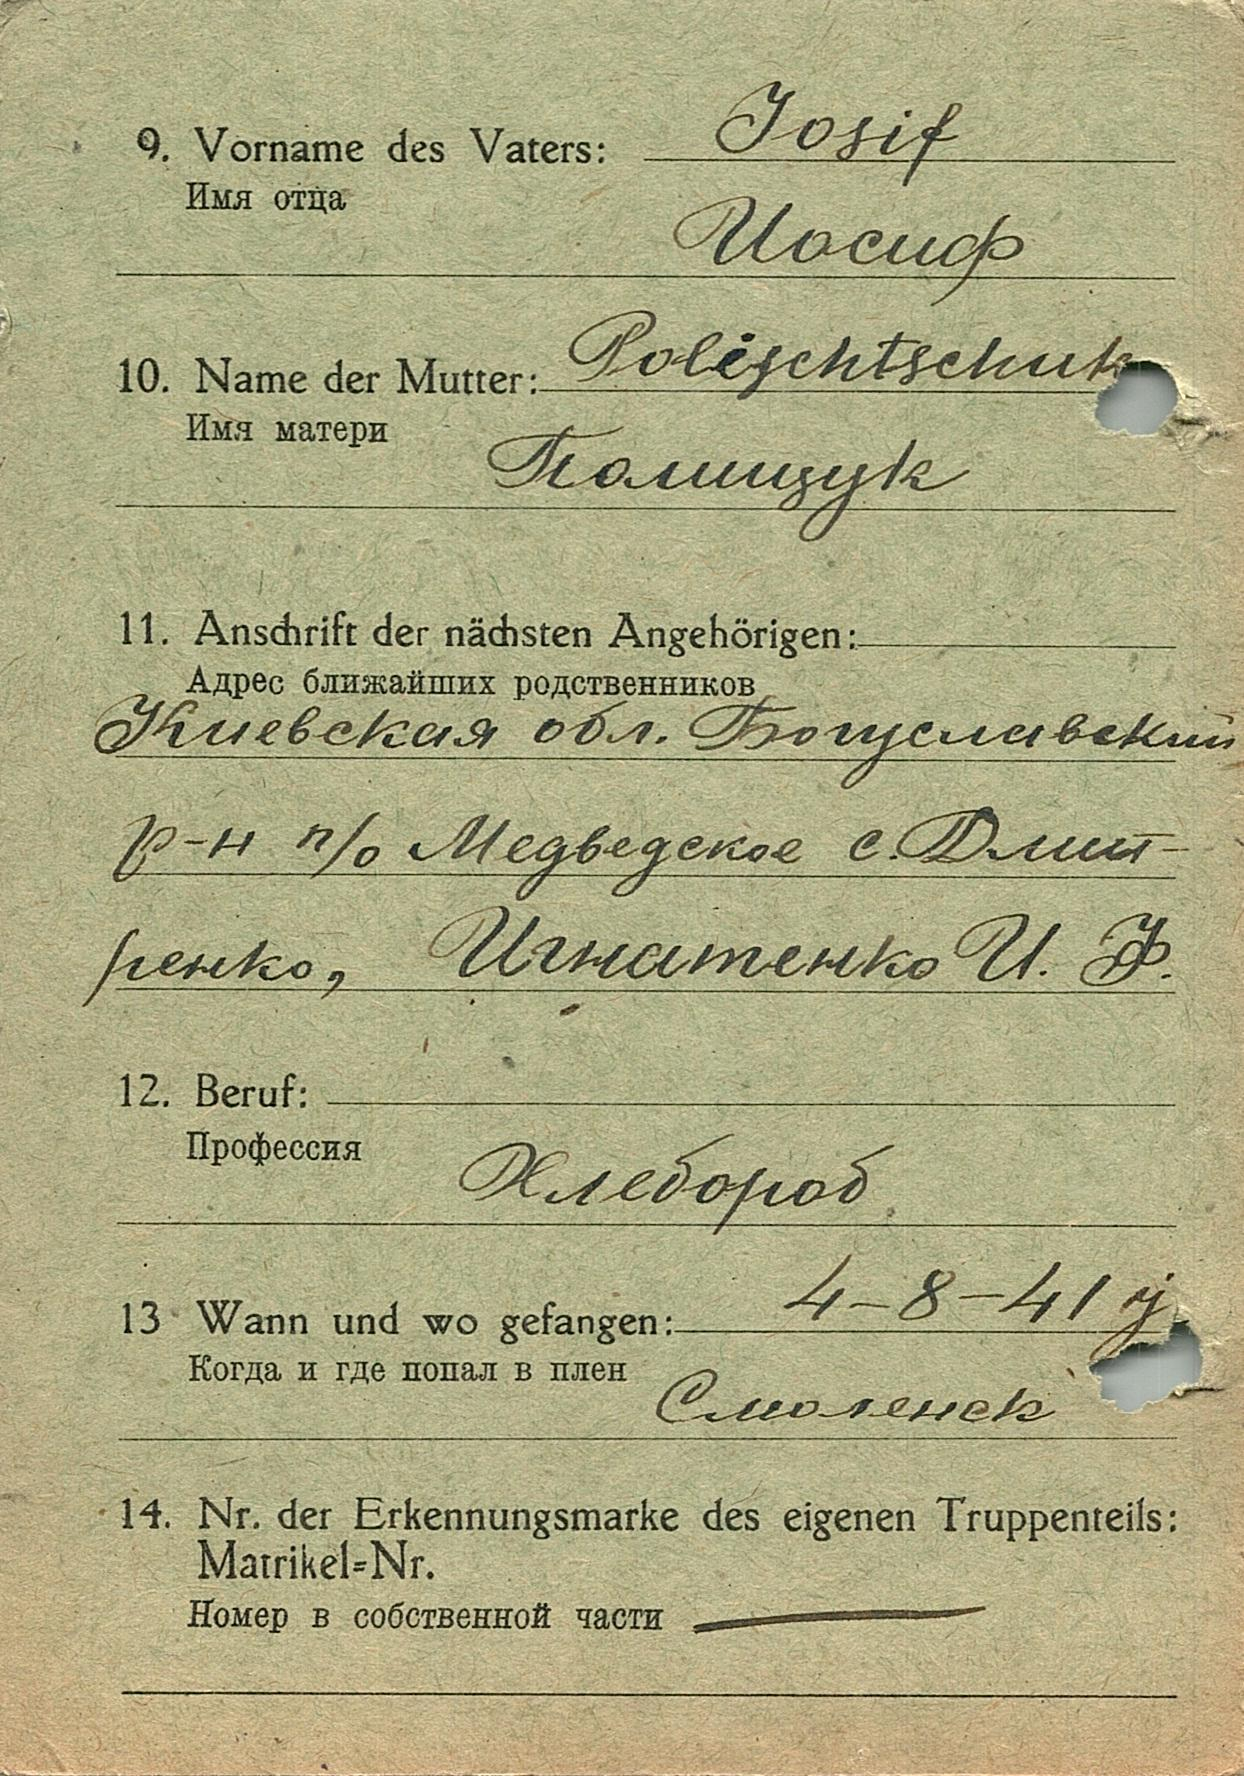 9. Vorname des Vaters: Josif
Имя отца
Иосиф
10. Name der Mutter: Polischtschuk
Имя матери
Полищук
11. Anschrift der nächsten Angehörigen:
Адрес ближайших родственников
Киевская обл. Богуславский
р-н п/о Медведское с. Дмит-
ренко, Игнатенко И. Ф.
12. Beruf:
Профессия
Хлебороб
13 Wann und wo gefangen: 4-8-41
Когда и где попал в плен
Смоленск
14. Nr. der Erkennungsmarke des eigenen Truppenteils:
Matrikel=Nr.
Номер в собственной части —